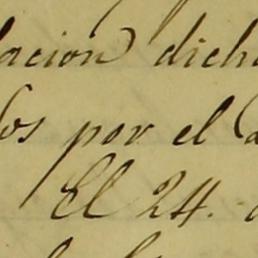 lacion dich
os por el
El 24.